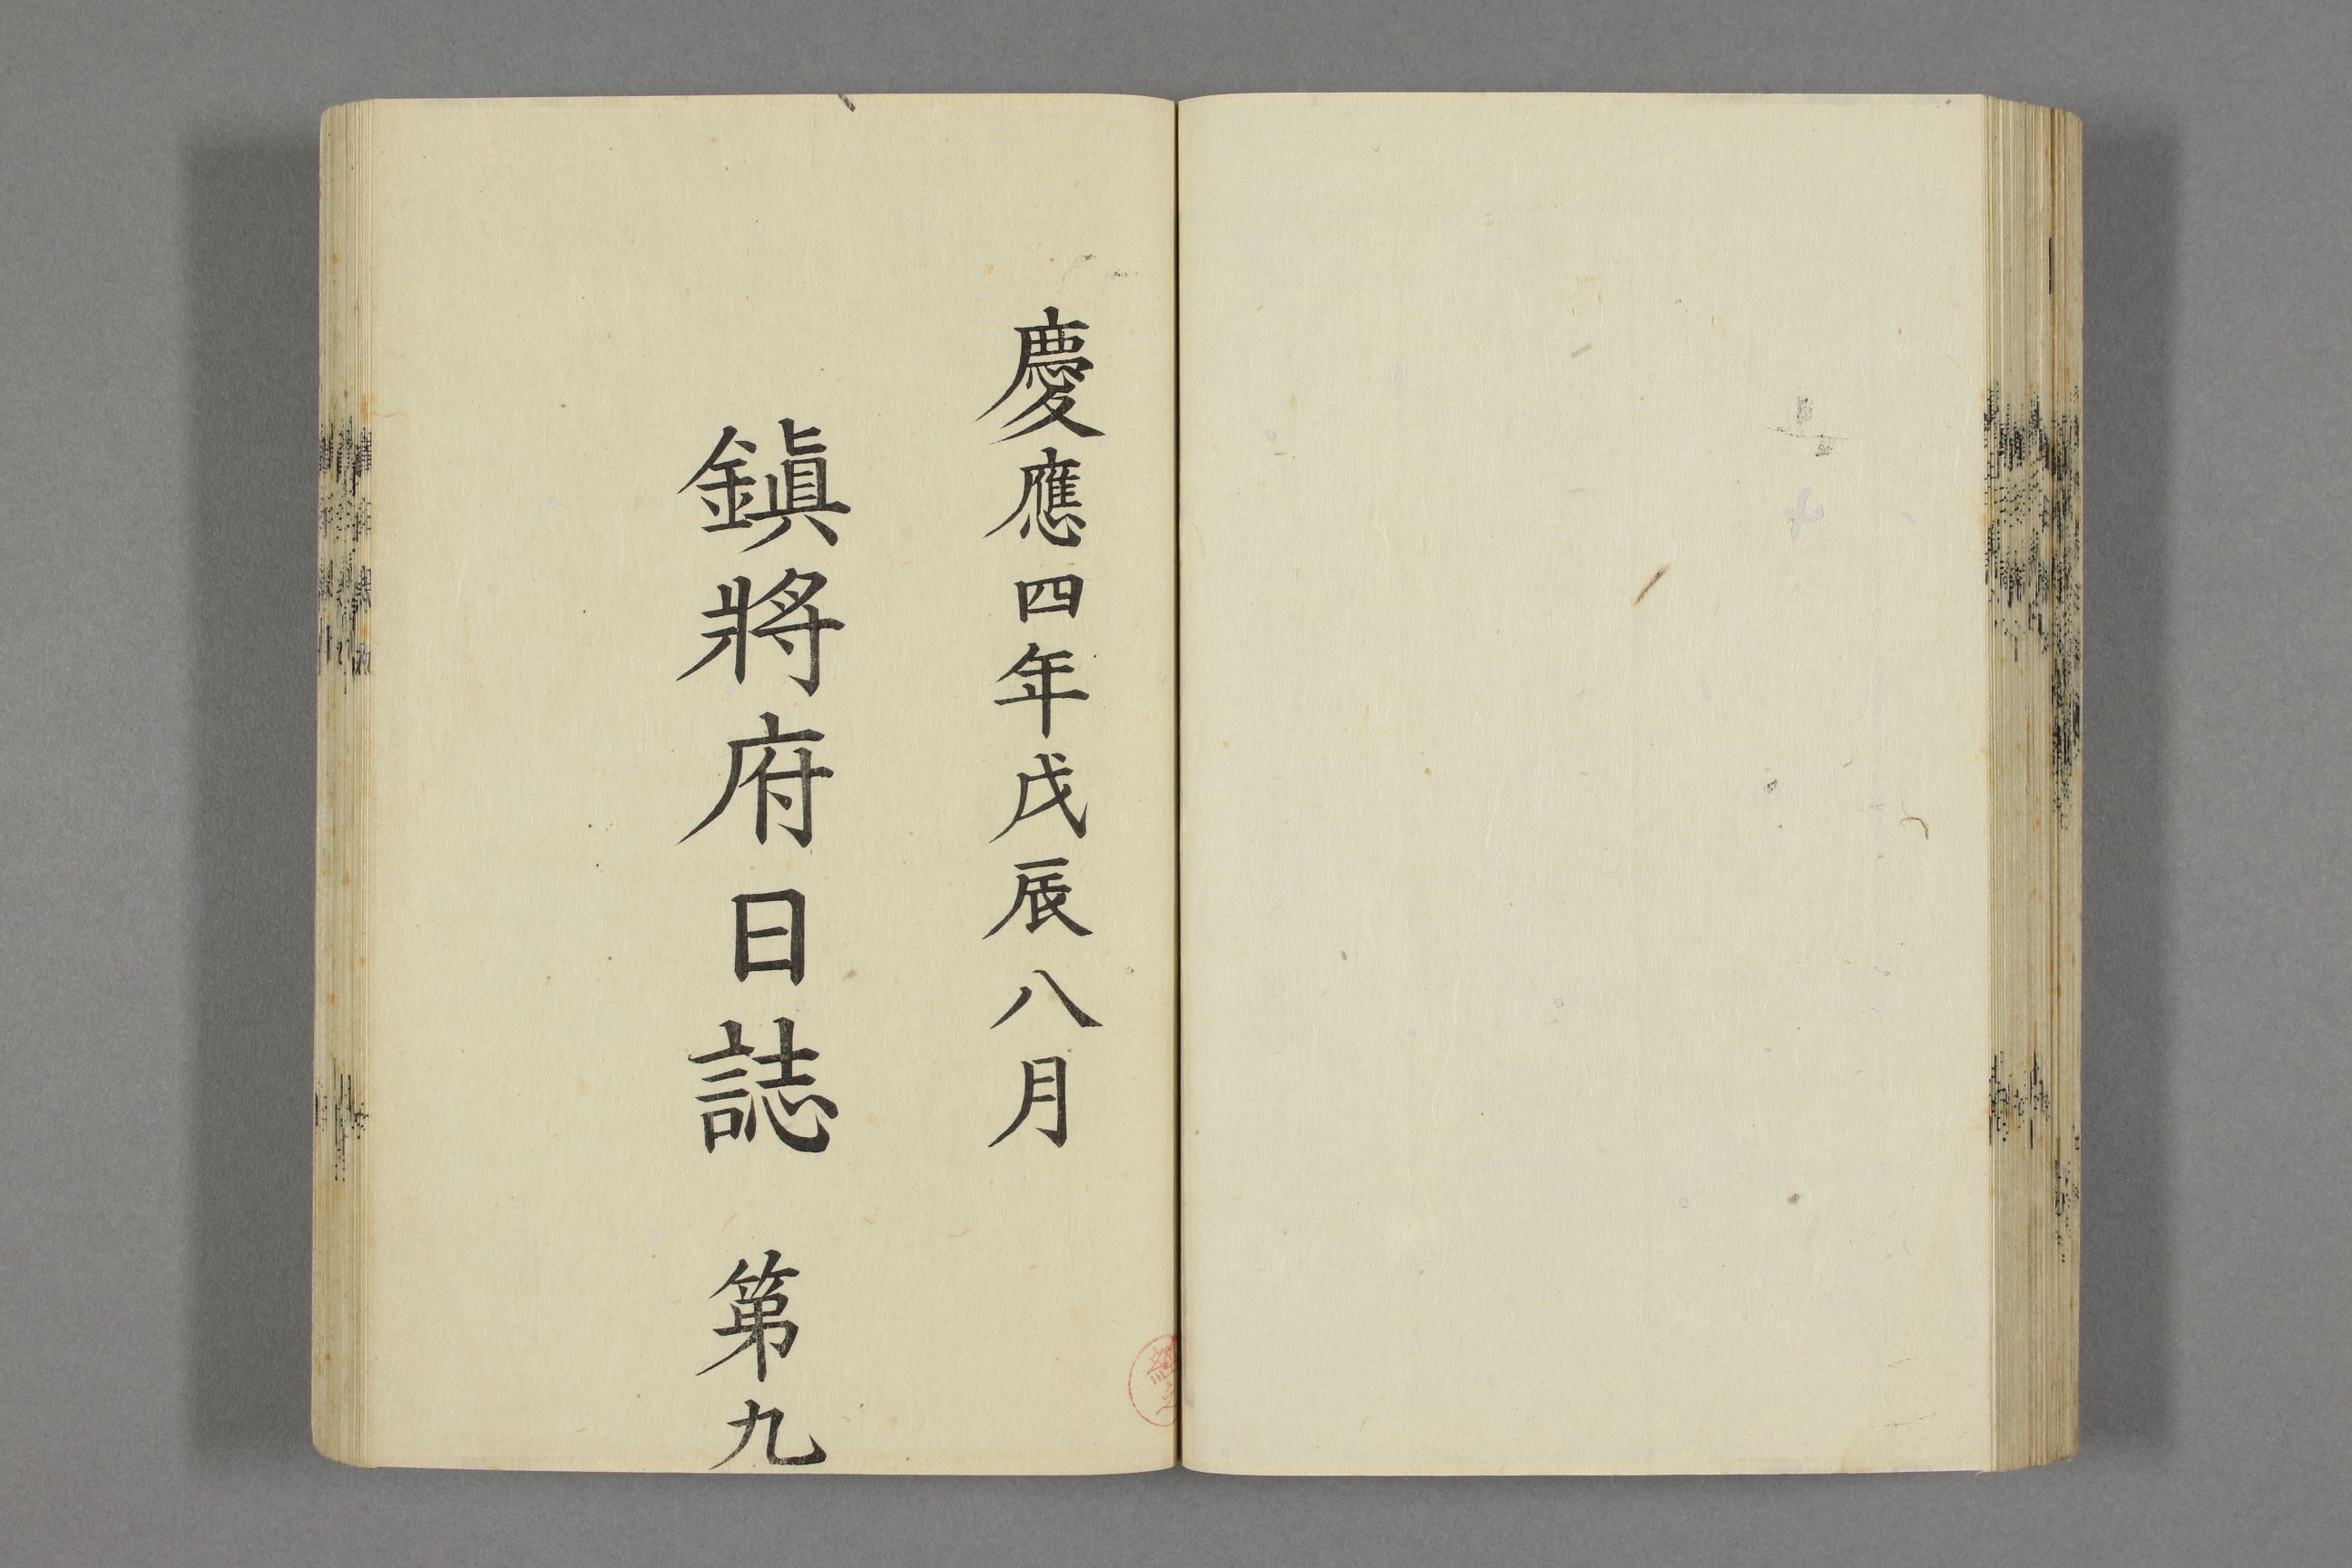 慶應四年戊辰八月
鎭將府日誌 第九